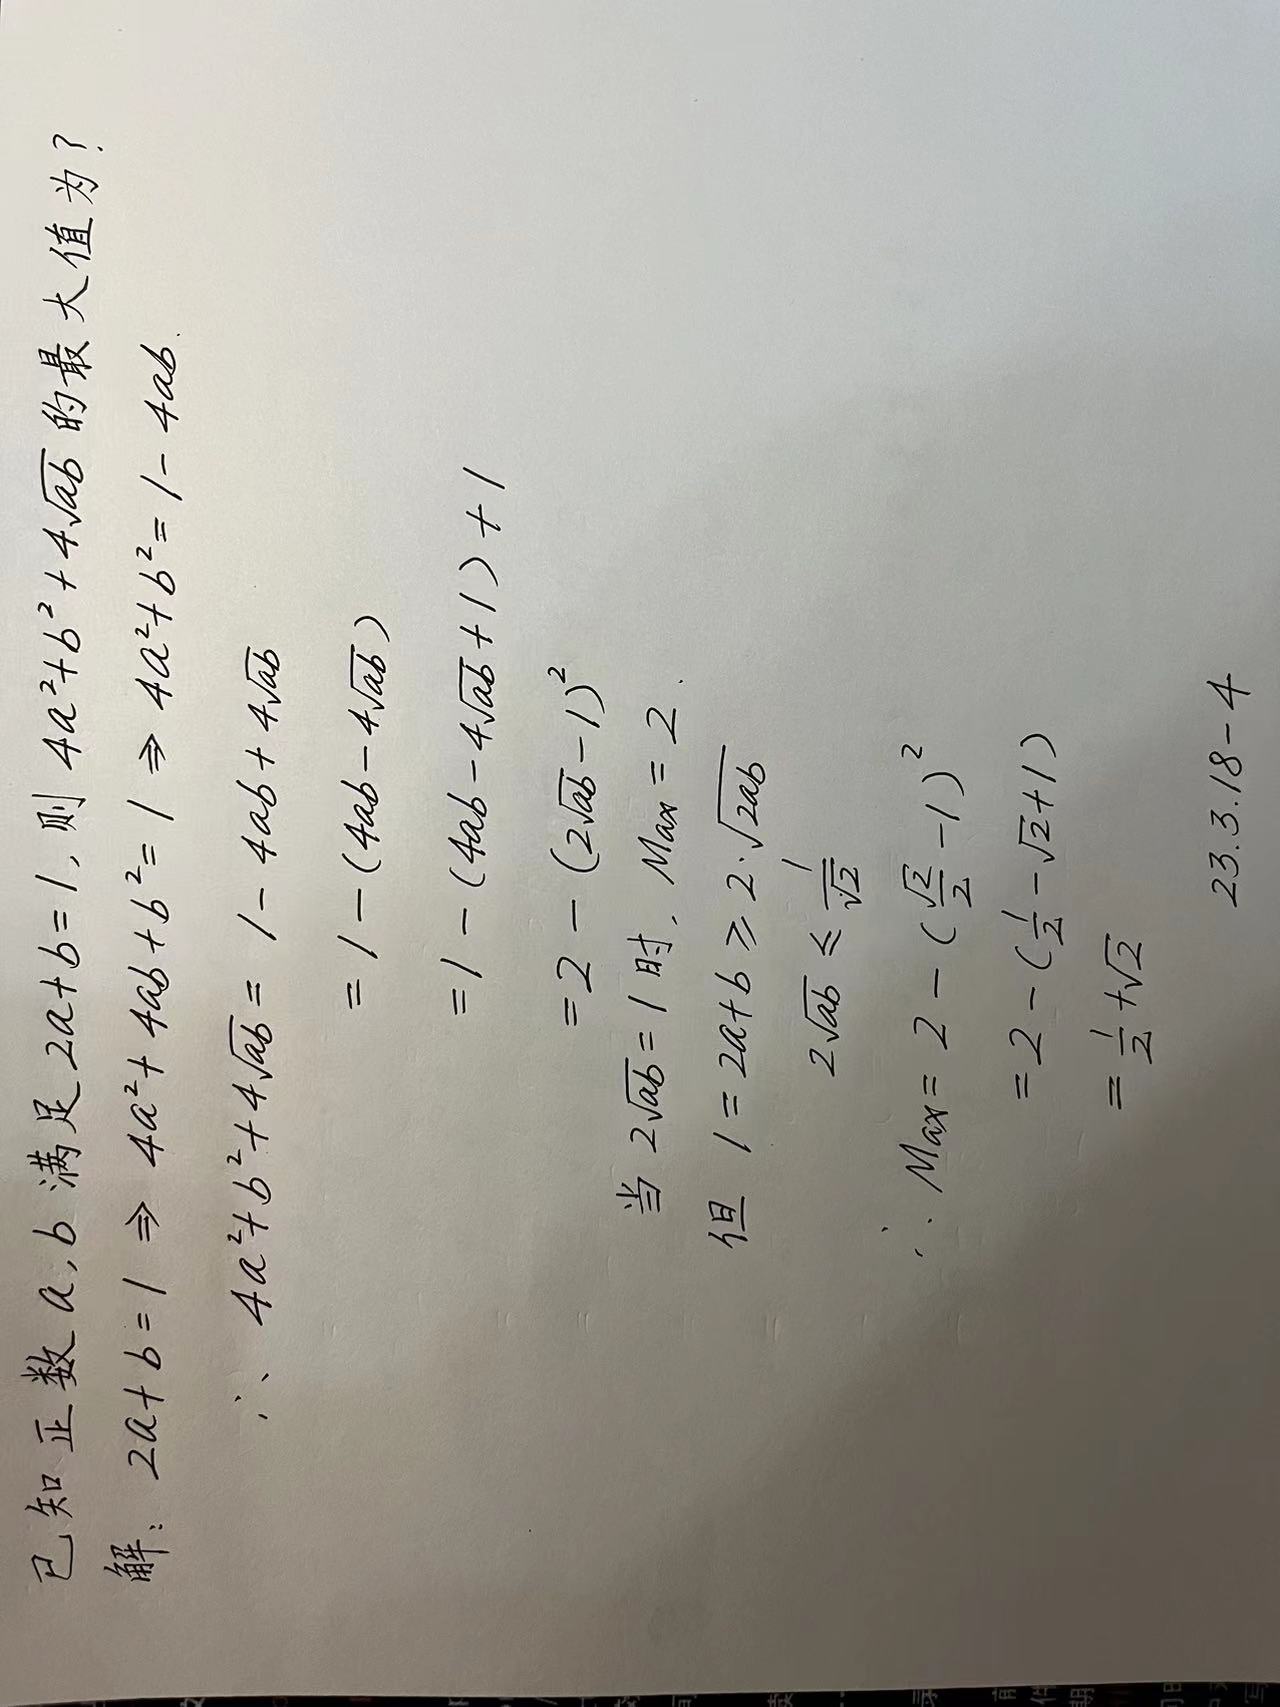 已知正数 a,b 满足 2a+b=1, 则 4a²+b²+4√ab 的最大值为?
解: 2a+b=1 ⇒ 4a²+4ab+b²=1 ⇒ 4a²+b²=1-4ab.
∴ 4a²+b²+4√ab = 1-4ab+4√ab
=1-(4ab-4√ab)
=1-(4ab-4√ab+1)+1
=2-(2√ab-1)²
当 2√ab=1 时, Max=2.
但 1=2a+b≥2·√2ab
2√ab ≤ 1/√2
∴ Max=2-(√2/2-1)²
=2-(1/2-√2+1)
=1/2+√2
23.3.18-4